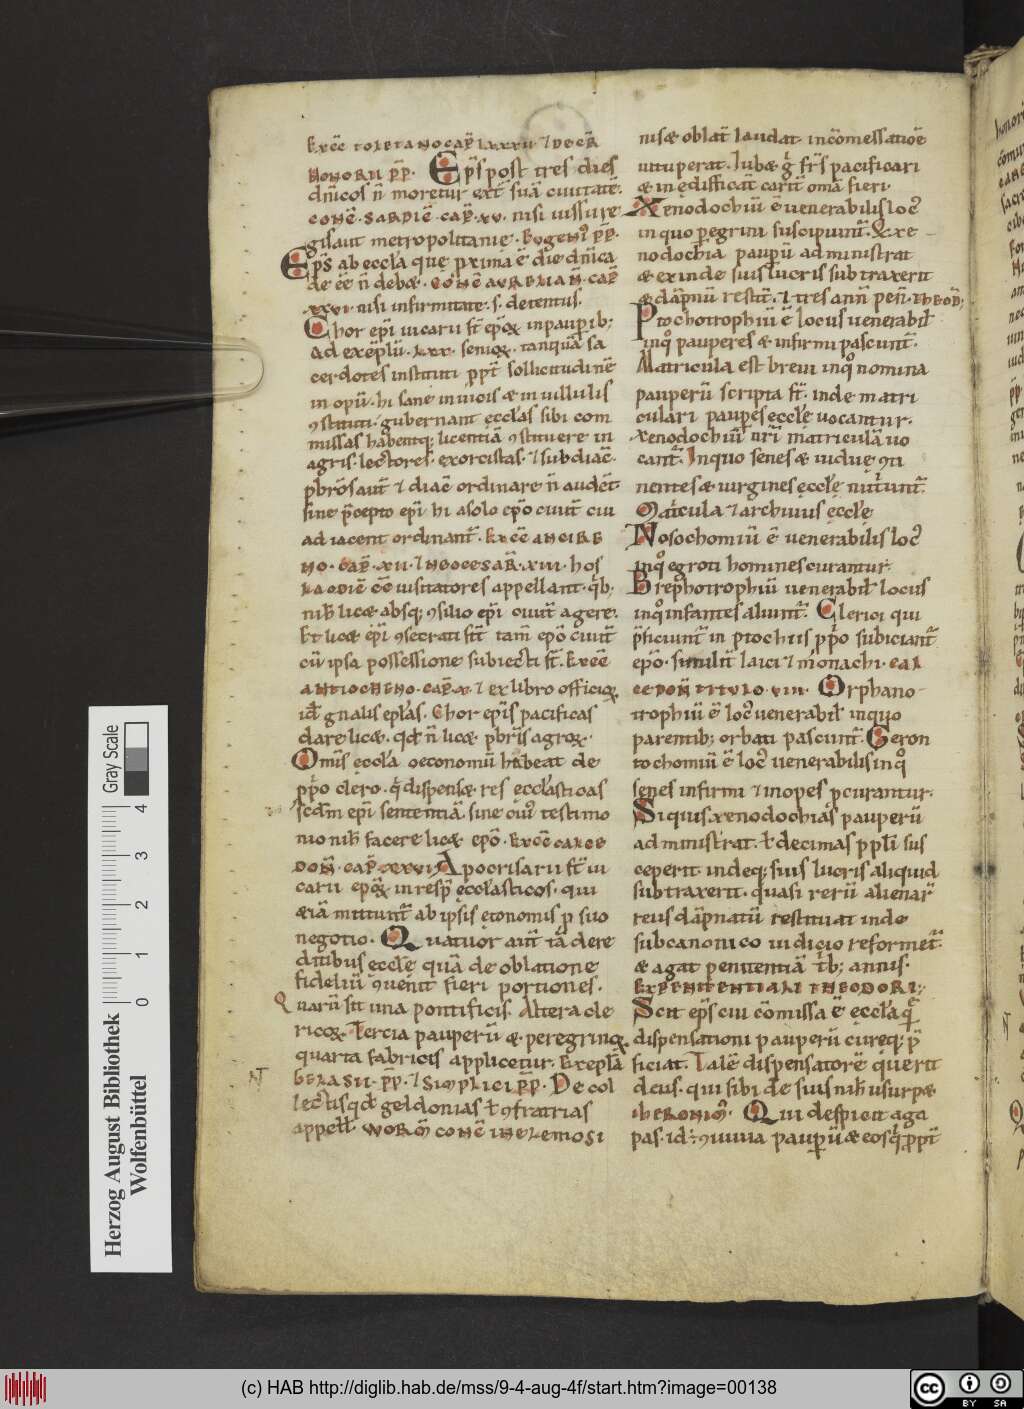 Ex c̄c toletano cap̄ lxxxii ⁊ decr̄
honorii pp̄. Ep̄s post tres dies
dn̄icos n̄ moretur ext̄ suā ciuitatē.
conc̄. sardic̄. cap̄. xv. nisi iussu re
gis aut metropolitanię. Eugeni' pp̄.
Ep̄s ab eccl̄a que ꝓxima ē die dn̄ica
de ee n̄ debæ. conc̄ aurelian̄. cap̄
xxvi. nisi infirmitate. s. detentus.
Chor ep̄i uicarii st̄ ep̄oꝝ in pauꝑib;
Ad exēplū. lxx. senioꝝ. tanquā sa
cerdotes instituti ꝓpt̄ sollicitudinē
inopū. hi sane in uicis æ in uillulis
ꝯstituti. gubernant ęccl̄as sibi com
missas habentq; licentiā ꝯstituere in
agris. lectores. exorcistas. ⁊ subdiac̄.
pbr̄os aut̄ ⁊ diac̄ ordinare n̄ audēt
sine p̄cepto ep̄i hi a solo ep̄o ciuit̄ cui
adiacent ordinant̄. Ex c̄c ancire
no. cap̄. xii. ⁊ neocesar̄. xiiii. hos
laodic̄ c̄c uisitatores appellant. qb;
nih̄ licæ absq; ꝯsilio ep̄i ciuit̄ agere.
Et licæ ep̄i ꝯsecrati st̄ tam̄ ep̄o ciuit̄
cū ipsa possessione subiecti st̄. Ex c̄c
antiocheno. cap̄. x. ⁊ ex libro officioꝝ
id̄ gn̄alis epl̄as. Chor ep̄is pacificas
dare licæ. qd̄ n̄ licæ pbr̄is agroꝝ.
Omīs ęccl̄a oeconomū habeat de
ꝓpo clero. q̄ dispensæ res ęccl̄asticas
scd̄m ep̄i sententiā. sine cui' testimo
nio nih̄ facere licæ ep̄o. Ex c̄c calce
don̄. cap̄. xxvi. Apocrisarii st̄ ui
carii ep̄oꝝ in resp̄ ęccl̄asticos. qui
æiā mittunt̄ ab ipsis ęconomis ꝓ suo
negotio. Quatuor aut̄ tā de re
ditibus ęccl̄ę quā de oblatione
fidelium ꝯuenit fieri portiones.
Quarū sit una pontificis. Altera cle
ricoꝝ. Tercia pauperū æ peregrinoꝝ
quarta fabricis applicetur. Exēpla
gelasii. pp̄. ⁊ simplicii pp̄. De col
lectis qd̄ geldonias ł ꝯfratrias
appell̄. worm̄ conc̄ in elemosi
nisæ oblat̄ laudat in cōmessatioē
uituperat. Iubæ g̊ fr̄s pacificari
æ in edifficat̄ carit̄ omā fieri.
Xenodochiū ē uenerabilis loc'
in quo peregrini suscipiunt̄. Q xe
nodochia pauꝑū administrat
æ exinde suis lucris subtraxerit
æ dāpnū restit̄. ⁊ tres ann̄ pen̄. theod̄;
Ptochotrophiū ē locus uenerabił
inq° pauperes æ infirmi pascunt̄.
Matricula est breui inq° nomina
pauperū scripta st̄. inde matri
culari pauꝑes ęccl̄ę uocantur.
xenodochiū nr̄i matriculā uo
cant̄. In quo senes æ uiduę ꝯti
nentes æ uirgines ęccl̄ę nutunt̄.
Matricula ⁊ archiuius ęccl̄ę
Nosochomiū ē uenerabilis loc'
inq° egroti homines curantur
Brephotrophiū uenerabił locus
inq° infantes aliunt̄. Clerici qui
p̄ficiunt̄ in ptochiis ꝓpo subiciant̄
ep̄o. similit̄ laici ⁊ monachi. cal
cedon̄ titulo. viii. Orphano
trophiū ē loc' uenerabił in quo
parentib; orbati pascunt̄. Geron
tochomiū ē loc' uenerabilis inq°
senes infirmi ⁊ inopes ꝓcurantur.
Siquis. xenodochias pauperū
administrat. ł decimas ppl̄i sus
ceperit. indeq; suis lucris aliquid
subtraxerit. quasi rerū alienar̄
reus dāpnatū restituat inde
sub canonico iudicio reformet̄.
æ agat penitentiā t̄b; annis.
Ex penitentiali theodori;
Scit ep̄s cui cōmissa ē ęccl̄a q̄
dispensationi pauperū cureq; p̄
ficiat. Talē dispensatorē querit
deus. qui sibi de suis nih̄ usurpæ
iheronim̄. Qui despicit aga
pas. id. ꝯuiuia pauꝑū æ eos q̄ ꝓpt̄
Gray Scale
0 1 2 3 4
Herzog August Bibliothek
Wolfenbüttel
(c) HAB http://diglib.hab.de/mss/9-4-aug-4f/start.htm?image=00138
cc BY SA